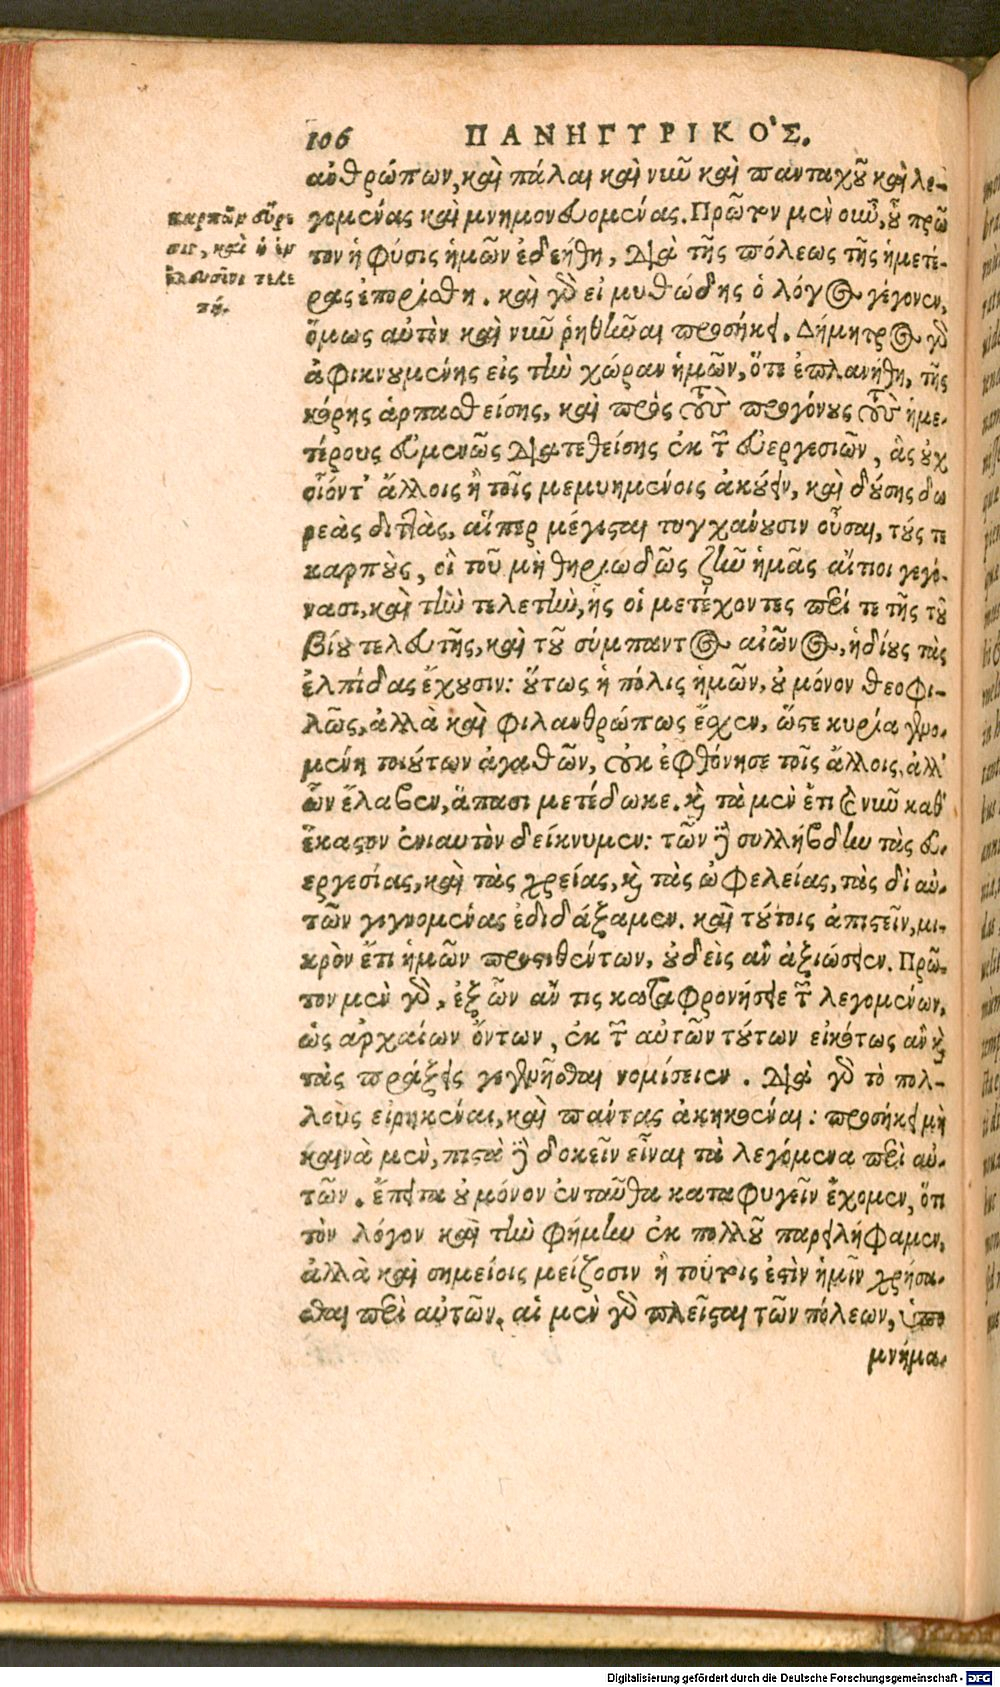 106 ΠΑΝΗΓΥΡΙΚΟ'Σ.
ανθρώπων, καὶ πάλαι καὶ νῦν καὶ πανταχοῦ καὶ λε-
καρπῶν εὕρε
γομένας καὶ μνημονευομένας. Πρῶτον μὲν οὖν, οὗ πρῶ
σις, καὶ ἡ ἐν
τον ἡ φύσις ἡμῶν ἐδεήθη, διὰ τῆς πόλεως τῆς ἡμετέ-
ἐλευσῖνι τελε
ρας ἐπορίσθη. καὶ γὸ εἰ μυθώδης ὁ λόγος γέγονεν,
τή.
ὅμως αὐτὸν καὶ νῦν ῥηθῆναι προσήκει. Δήμητρος γὸ
ἀφικνουμένης εἰς τὴν χώραν ἡμῶν, ὅτε ἐπλανήθη, τῆς
κόρης ἁρπασθείσης, καὶ πρὸς τοὺς προγόνους τοὺς ἡμε-
τέρους εὐμενῶς διατεθείσης ἐκ τῶν εὐεργεσιῶν, ἃς οὐχ
οἷόντ' ἄλλοις ἢ τοῖς μεμυημένοις ἀκούειν, καὶ δούσης δω
ρεὰς διττὰς, αἵπερ μέγισται τυγχάνουσιν οὖσαι, τούς τε
καρποὺς, οἳ τοῦ μὴ θηριωδῶς ζῆν ἡμᾶς αἴτιοι γεγό-
νασι, καὶ τὴν τελετὴν, ἧς οἱ μετέχοντες περί τε τῆς τοῦ
βίου τελευτῆς, καὶ τοῦ σύμπαντος αἰῶνος, ἡδίους τὰς
ἐλπίδας ἔχουσιν: οὕτως ἡ πόλις ἡμῶν, οὐ μόνον θεοφι-
λῶς, ἀλλὰ καὶ φιλανθρώπως ἔσχεν, ὥστε κυρία γενο-
μένη τοιούτων ἀγαθῶν, οὐκ ἐφθόνησε τοῖς ἄλλοις, ἀλλ'
ὧν ἔλαβεν, ἅπασι μετέδωκε. καὶ τὰ μὲν ἔτι καὶ νῦν καθ'
ἕκαστον ἐνιαυτὸν δείκνυμεν: τῶν δὲ συλλήβδην τὰς εὐ-
εργεσίας, καὶ τὰς χρείας, καὶ τὰς ὠφελείας, τὰς δἰ αὐ-
τῶν γιγνομένας ἐδιδάξαμεν. καὶ τούτοις ἀπιστεῖν, μι-
κρὸν ἔτι ἡμῶν προστιθέντων, οὐδεὶς ἂν ἀξιώσειεν. Πρῶ-
τον μὲν γὸ, ἐξ ὧν ἄν τις καταφρονήσειε τῶν λεγομένων,
ὡς ἀρχαίων ὄντων, ἐκ τῶν αὐτῶν τούτων εἰκότως ἂν καὶ
τὰς πράξεις γεγενῆσθαι νομίσειεν. διὰ γὸ τὸ πολ-
λοὺς εἰρηκέναι, καὶ πάντας ἀκηκοέναι: προσήκει μὴ
καινὰ μὲν, πιστὰ δὲ δοκεῖν εἶναι τὰ λεγόμενα περὶ αὐ-
τῶν. ἔπειτα οὐ μόνον ἐνταῦθα καταφυγεῖν ἔχομεν, ὅτι
τὸν λόγον καὶ τὴν φήμην ἐκ πολλοῦ παρειλήφαμεν,
ἀλλὰ καὶ σημείοις μείζοσιν ἢ τούτοις ἐστὶν ἡμῖν χρήσα-
σθαι περὶ αὐτῶν. αἱ μὲν γὸ πλεῖσται τῶν πόλεων, ὑπο
μνήμα-
Digitalisierung gefördert durch die Deutsche Forschungsgemeinschaft - DFG